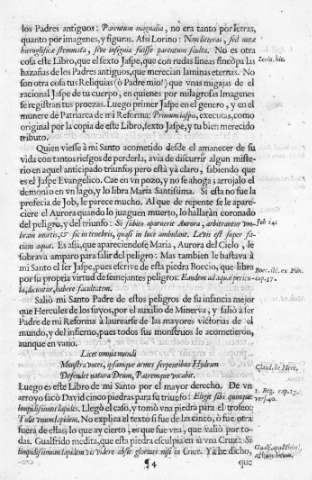 los Padres antiguos: Parentum magnalia, no era tanto por letras,
quanto por imagenes, y figuras. Assi Lorino: Non literas, sed nota
hieroglifica stemmata, sive insignia fuisse parentum facta. No es otra
cosa este Libro, que el sexto Jaspe, que con rudas lineas sincopa las
hazañas de los Padres antiguos, que merecian laminas eternas. No
son otra cosa tus Reliquias (ò Padre mio!) que vnas migajas de el
racional Jaspe de tu cuerpo, en quienes por milagrosas Imagenes
se registran tus proezas. Luego primer Jaspe en el genero, y en el
munere de Patriarca de mi Reforma: Primum iaspis, executas, como
original por la copia de este Libro, sexto Jaspe, y tu bien merecido
tributo.
Quien viesse à mi Santo acometido desde el amanecer de su
vida con tantos riesgos de perderla, avia de discurrir algun miste-
rio en aquel anticipado triunfo; pero està ya claro, sabiendo que
es el Jaspe Evangelico. Cae en vn pozo, y no se ahoga; arrojalo el
demonio en vn lago, y lo libra Maria Santissima. Si esta no fue la
profecia de Job, le parece mucho. Al que de repente se le apare-
ciere el Aurora quando lo juzguen muerto, lo hallaràn coronado
del peligro, y del triunfo: Si subito apparuerit Aurora, arbitrantur vm-
bram mortis, & sic in tenebris, quasi in luce ambulant. Levis est super fa-
ciem aquæ. Es assi, que apareciendose Maria, Aurora del Cielo, le
sobrava amparo para salir del peligro: Mas tambien le bastava à
mi Santo el ser Jaspe, pues escrive de esta piedra Boecio, que libra
por su propria virtud de semejantes peligros: Eandem ad aquæ pericu-
la,
Saliò mi Santo Padre de estos peligros de su infancia mejor
que Hercules de los suyos, por el auxilio de Minerva, y saliò à ser
Padre de mi Reforma à laurearse de las mayores victorias de el
mundo, y del infierno, pues todos sus monstruos le acometieron,
aunque en vano.
Licet omnia mundi
Monstra vnet, ipsamque armet serpentibus Hydram
Defendet natura Deum, Patremque vocabit.
Luego es este Libro de mi Santo por el mayor derecho. De vn
arroyo sacò David cinco piedras para su triunfo: Elegit sibi quinque
limpidissimos lapides. Llegò el caso, y tomò vna piedra para el trofeo:
Tulit vnum lapidem. No explica el texto si fue de las cinco, ò fue otra
fuera de ellas: lo que ay cierto, es que fue vna, que valiò por to-
das. Gualfrido medita, que esta piedra esculpia en sì vna Cruz: Si
limpidissimum lapidem vis videre absit gloriari nisi in Cruce. Ya he dicho,
¶4
que
Job 14.
cap. 17.
Claud. de Herc.
1. Reg. cap. 17.
vers. 40.